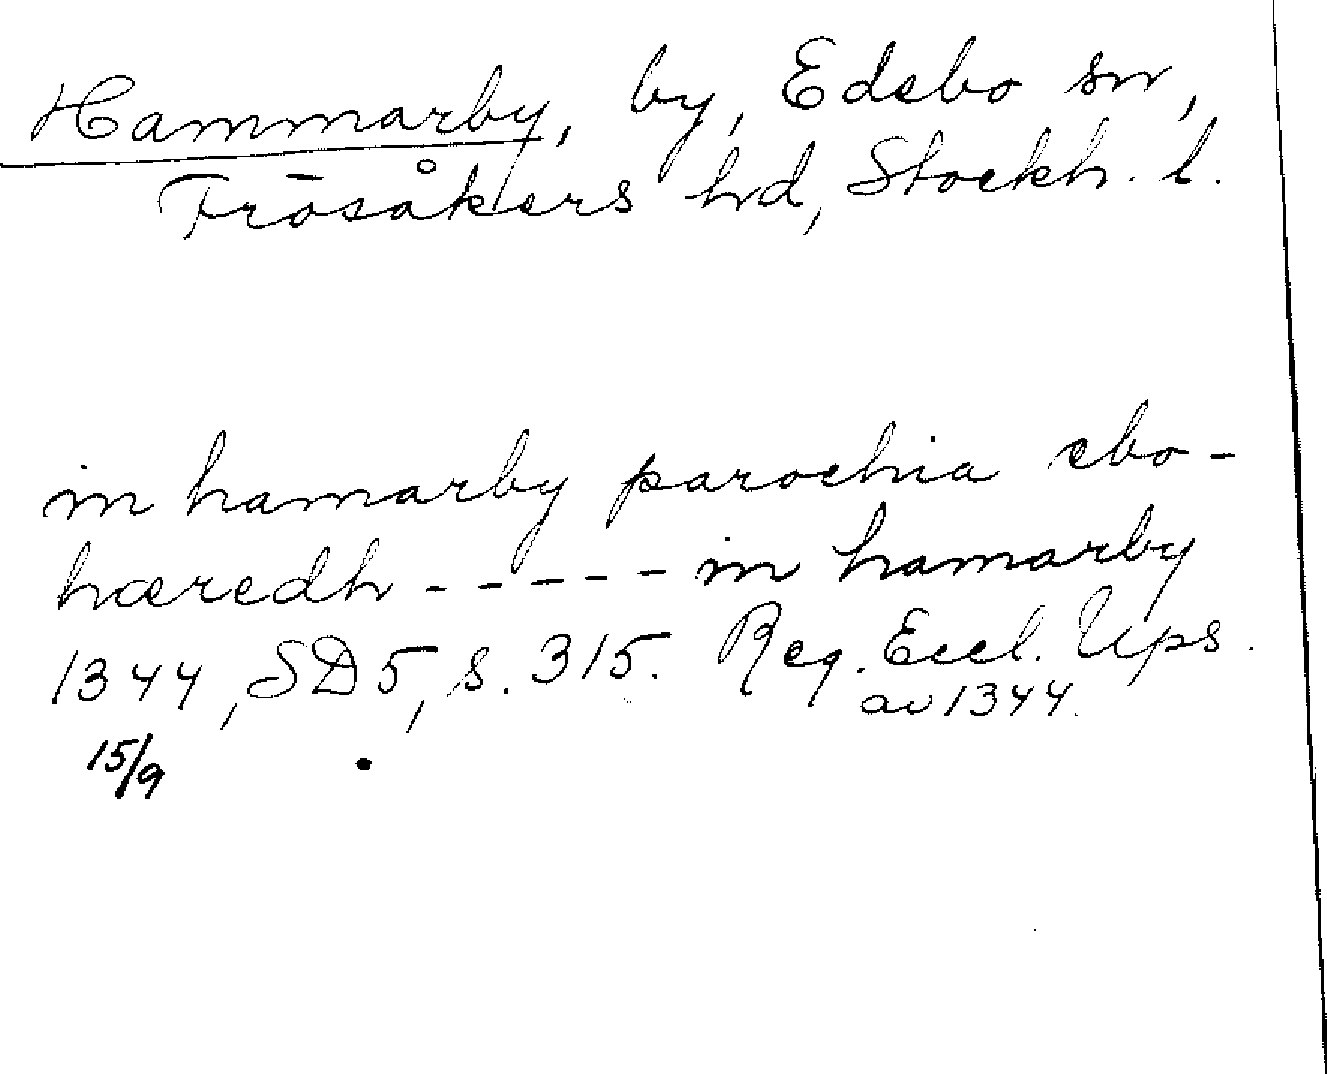 Hammarby, by, Edebo sn,
Frösåkers hd, Stockh. l.
in hamarby parochia ebo-
hæredh - - - - - in hamarby
1344, SD5, s. 315. Reg. Eccl. Ups.
av 1344.
15/9